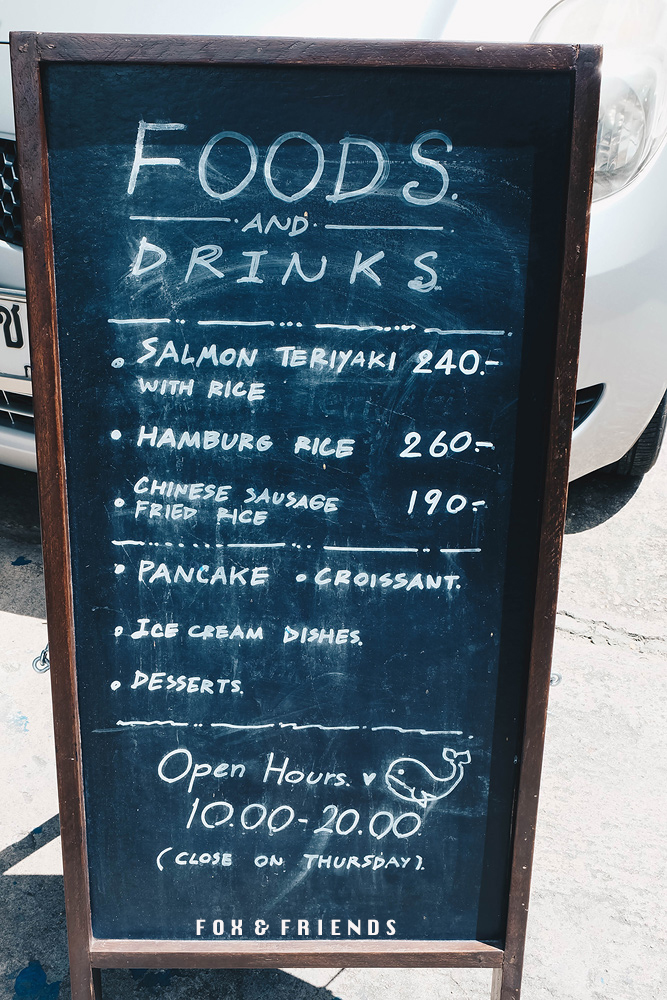 FOODS.
AND
DRINKS
• SALMON TERIYAKI 240.-
WITH RICE
• HAMBURG RICE 260.-
CHINESE SAUSAGE
• FRIED RICE 190.-
• PANCAKE • CROISSANT.
• ICE CREAM DISHES.
• DESSERTS.
Open Hours. ♥
10.00-20.00
(CLOSE ON THURSDAY).
FOX & FRIENDS
ช